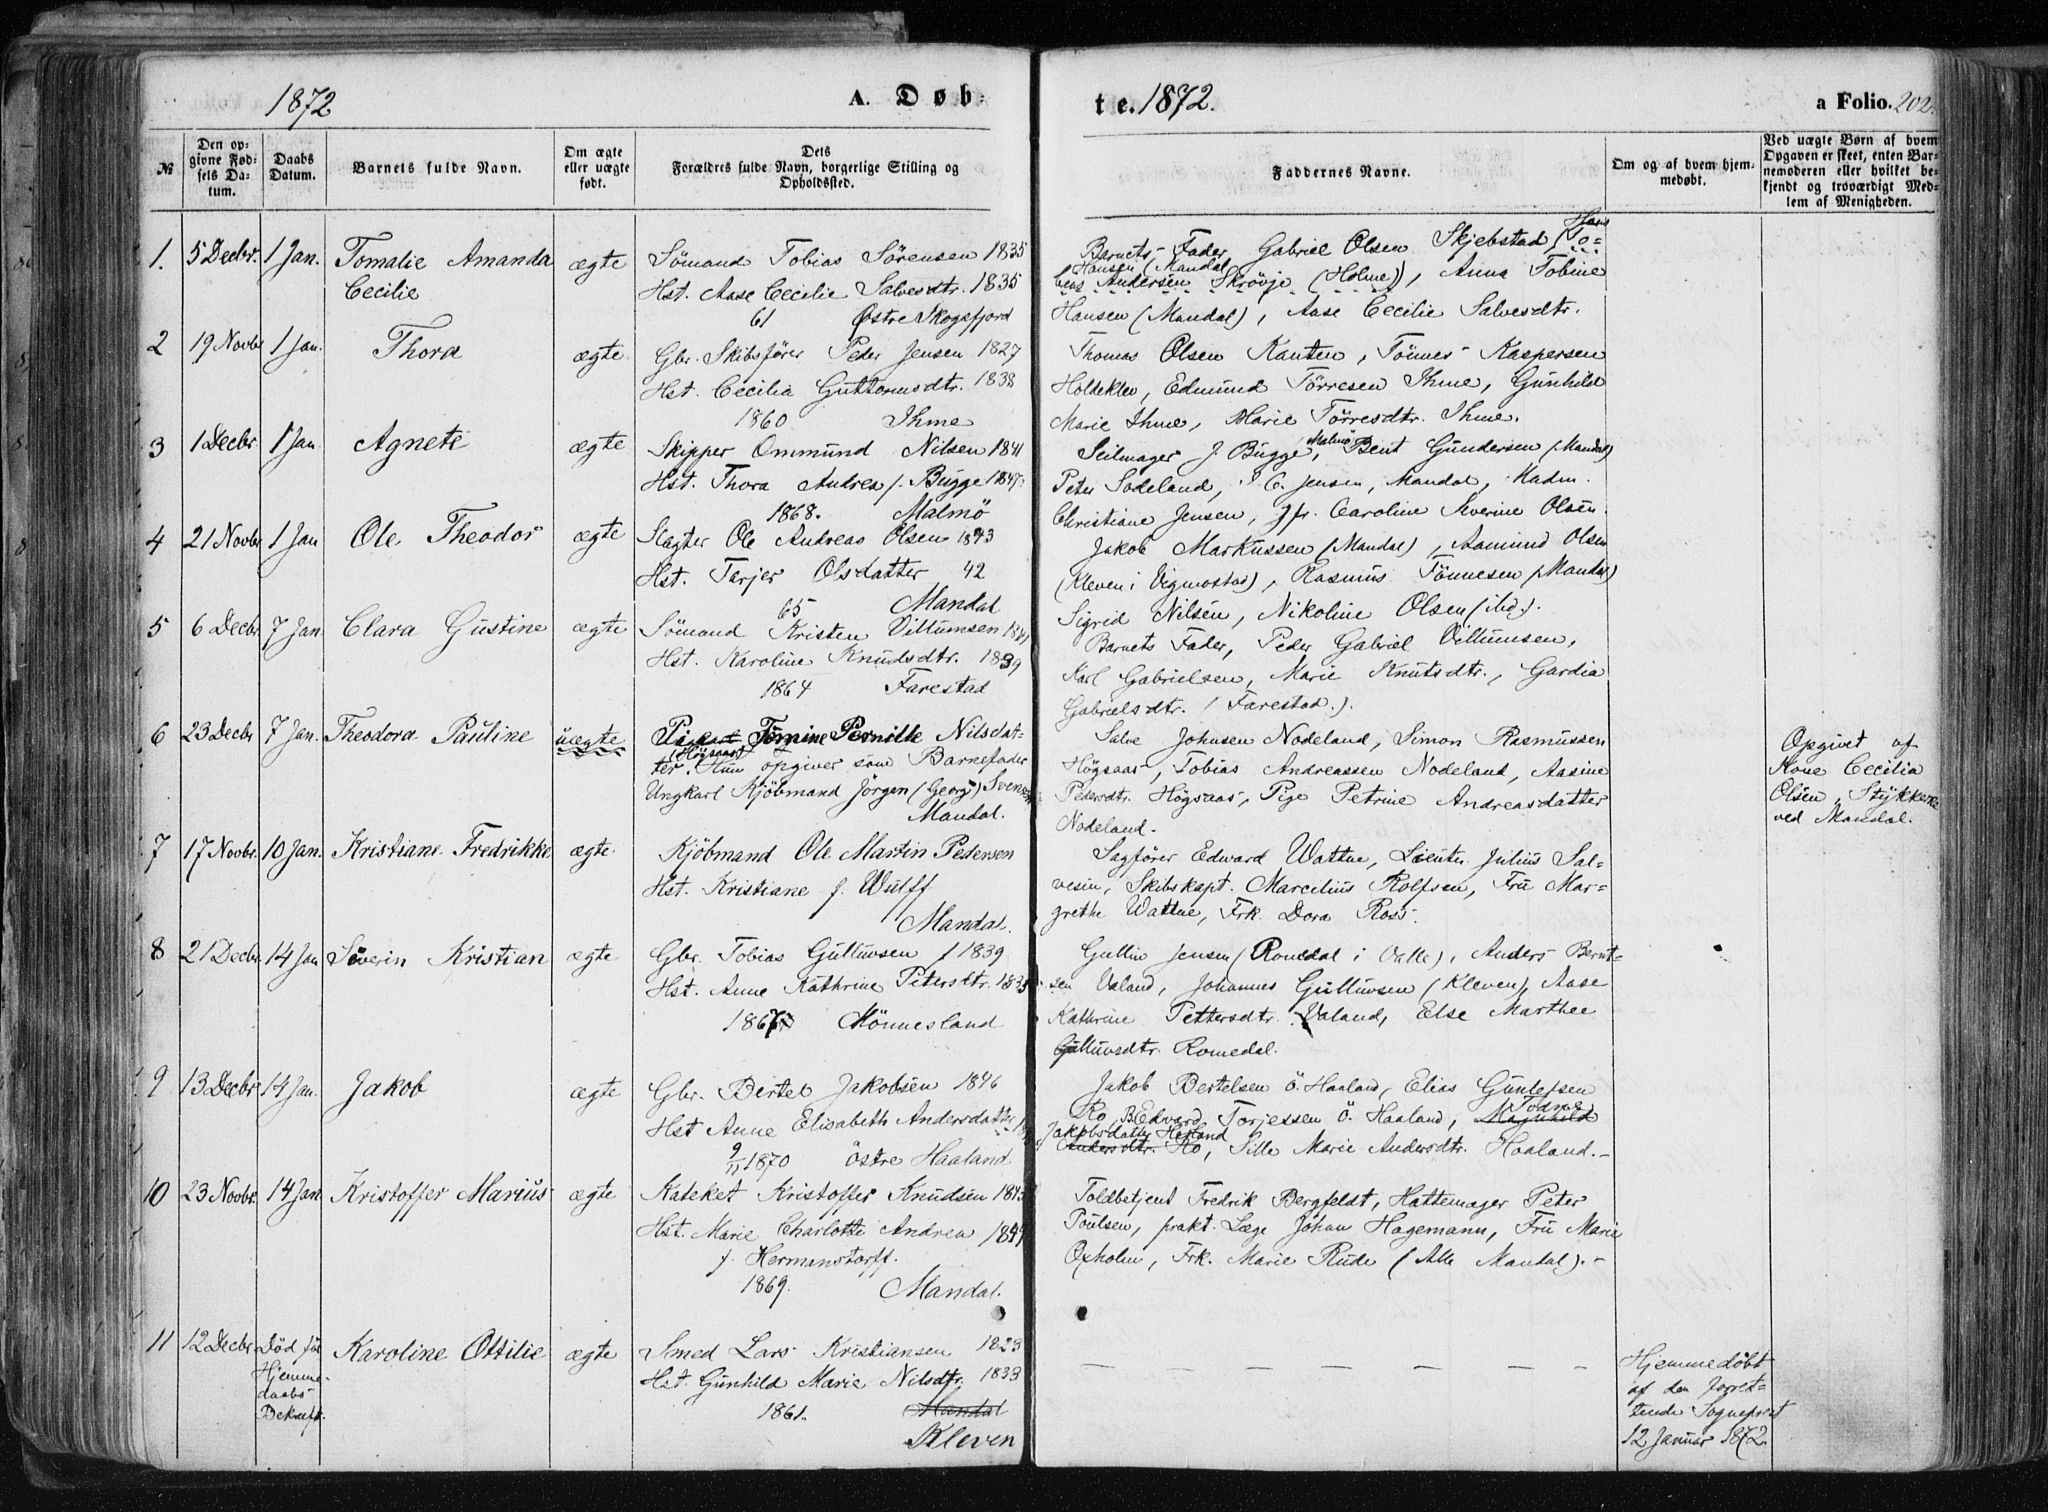 1872
A. Døb-
№
Den op-
givne Fød-
sels Da-
tum.
Daabs
Datum.
Barnets fulde Navn.
Om ægte
eller uægte
født.
Dets
Forældres fulde Navn, borgerlige Stilling og
Opholdssted.
1. 5 Decbr. 1 Jan. Tomalie Amanda ægte Sömand Tobias Sörensen 1835
Cecilie Hst. Aase Cecilie Salvesdtr. 1835
61 Östre Skogsfjord
2 19 Novbr 1 Jan. Thora ægte Gbr. Skibsfører Peder Jensen 1827
Hst. Cecilia Guttormsdtr. 1838
1860 Ihme
3 1 Decbr. 1 Jan Agnete ægte Skipper Ommund Nilsen 1841
Hst. Thora Andrea f. Bugge 1847
1868. Malmö
4 21 Novbr 1 Jan Ole Theodor ægte Slagter Ole Andreas Olsen 1843
Hst. Tarjer Olsdatter 42
65 Mandal
5 6 Decbr. 7 Jan Clara Gustine ægte Sömand Kristen Villumsen
Hst. Karoline Knudsdtr. 1839
1864 Farestad
6 23 Decbr 7 Jan. Theodora Pauline uægte Pige Tomine Pernille Nilsdat-
(Högsaas)
ter. Hun opgiver som Barnefader
Ungkarl Kjöbmand Jörgen (Georg) Svensen
Mandal.
7 17 Novbr. 10 Jan. Kristiane Fredrikke ægte Kjöbmand Ole Martin Pedersen
Hst. Kristiane f. Wulff
Mandal.
8 21 Decbr. 14 Jan Severin Kristian ægte Gbr. Tobias Gulluvsen f 1839
Hst. Anne Kathrine Petersdtr.
Mönnesland
9 13 Decbr 14 Jan. Jakob ægte Gbr. Bertel Jakobsen 1846
Hst Anne Elisabeth Andersdatter
9/11 1870 östre Haaland
10 23 Novbr. 14 Jan Kristoffer Marius ægte Kateket Kristoffer Knudsen 1843
Hst. Marie Charlotte Andrea 1849
f. Hermanstorff.
1869. Mandal.
11 12 Decbr Död før Karoline Ottilie ægte Smed Lars Kristiansen 1823
Hjemme-
daabs-
Bekræft.
Hst. Gunhild Marie Nilsdtr. 1833
1861. Mandal
Kleven
te. 1872.
a Folio. 202.
Faddernes Navne.
Om og af hvem hjem-
medøbt.
Ved uægte Børn af hvem
Opgaven er skeet, enten Bar-
nemoderen eller hvilket be-
kjendt og troværdigt Med-
lem af Menigheden.
Hans
Barnets Fader, Gabriel Olsen Skjebstad, To-
Hansen (Mandal
bias Andersen Skröoje (Holme)), Anna Tobine
Hansen (Mandal), Aase Cecilie Salvesdtr.
Thomas Olsen Kanten, Tönnes Kaspersen
Holteklev, Edmund Törresen Ihme, Gunhild
Marie Ihme, Marie Törresdtr. Ihme.
Malmö
Seilmager J. Bugge, Bent Gundersen (Mandal)
Peter Sodeland, J. C. Jensen, Mandal, Madm.
Christiane Jensen, Jfr. Caroline Severine Olsen.
Jakob Markussen (Mandal), Aamund Olsen
(Kleven i Vigmostad), Rasmus Tönnesen (Mandal)
Sigrid Nilsen, Nikoline Olsen (ibd.).
Barnets Fader, Peder Gabriel Villumsen,
Karl Gabrielsen, Marie Knutsdtr., Gardia
Gabrielsdtr. (Farestad.).
Salve Johnsen Nodeland, Simon Rasmussen
Högsaas, Tobias Andreassen Nodeland, Aasine
Pedersdtr. Högsaas, Pige Petrine Andreasdatter
Nodeland.
Opgivet af
Kone Cecilia
Olsen, Stykkene
ved Mandal.
Sagfører Edward Wattne, Lieutn. Julius Sal-
vesen, Skibskapt. Marcilius Rolfsen, Fru Mar-
grethe Wattne, Frk. Dora Ross.
Gulluv Jensen (Romedal i Valle), Anders Bernt-
sen Valand, Johannes Gulluvsen (Kleven), Aase
Kathrine Pettersdtr. Valand, Else Marthee
Gulluvsdtr. Romedal.
Jakob Bertelsen Ö. Haaland, Elias Guntefsen
Ro, Edvard Torjessen Ö. Haaland, Magnhild
Jakobsdatter Hesland
Andersdtr. Ro, Sille Marie Andersdtr. Haaland.
Toldbetjent Fredrik Bergfeldt, Hattemager Peter
Poulsen, prakt. Læge Johan Hagemann, Fru Marie
Oxholm, Frk. Marie Rude (Alle Mandal).
Hjemmedöbt
af den forret-
tende Sogneprest
12 Januar 1872.